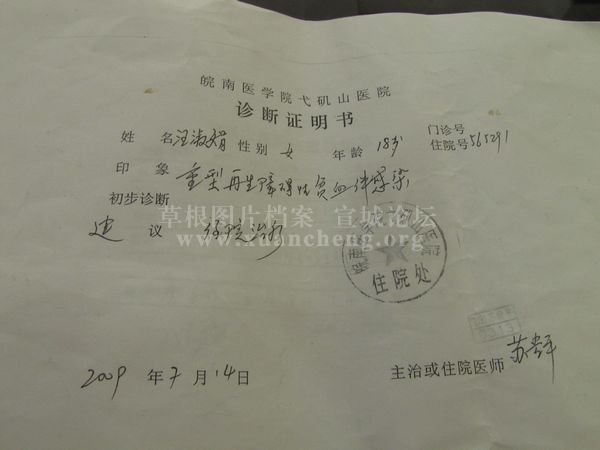 皖南医学院弋矶山医院
诊断证明书
姓 名 汪淑娟 性别 女 年龄 18岁 门诊号 住院号 565291
印 象 初步诊断 重型再生障碍性贫血伴感染
建 议 住院治疗
草根图片档案 宣城论坛
www.xuancheng.org
住院处
主治或住院医师 苏
2009 年 7 月 14 日